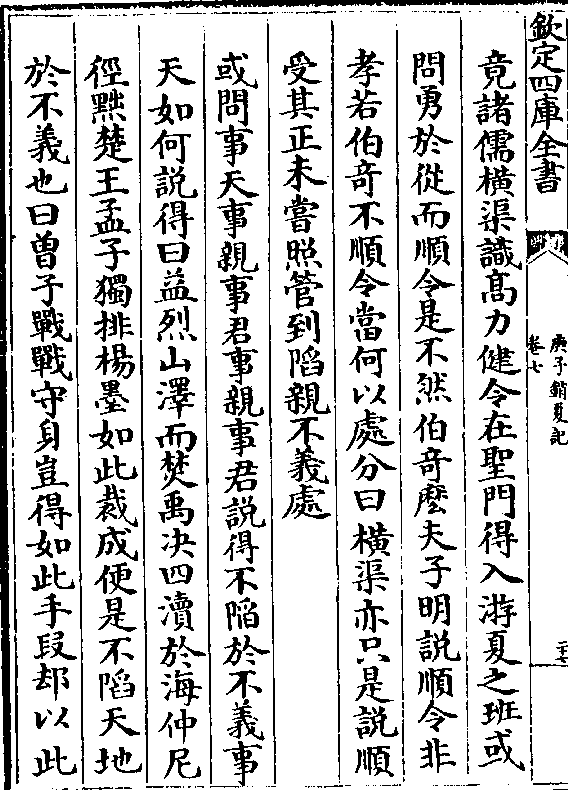 欽定四庫全書
庚子銷夏記
卷七
竟諸儒橫渠識髙力健令在聖門得入游夏之班或
問勇於從而順令是不然伯竒麽夫子明説順令非
孝若伯竒不順令當何以處分曰橫渠亦只是説順
受其正未嘗照管到陷親不義處
或問事天事親事君事親事君説得不陷於不義事
天如何説得曰益烈山澤而焚禹决四瀆於海仲尼
徑黜楚王孟子獨排楊墨如此裁成便是不陷天地
於不義也曰曾子戰戰守身豈得如此手段却以此